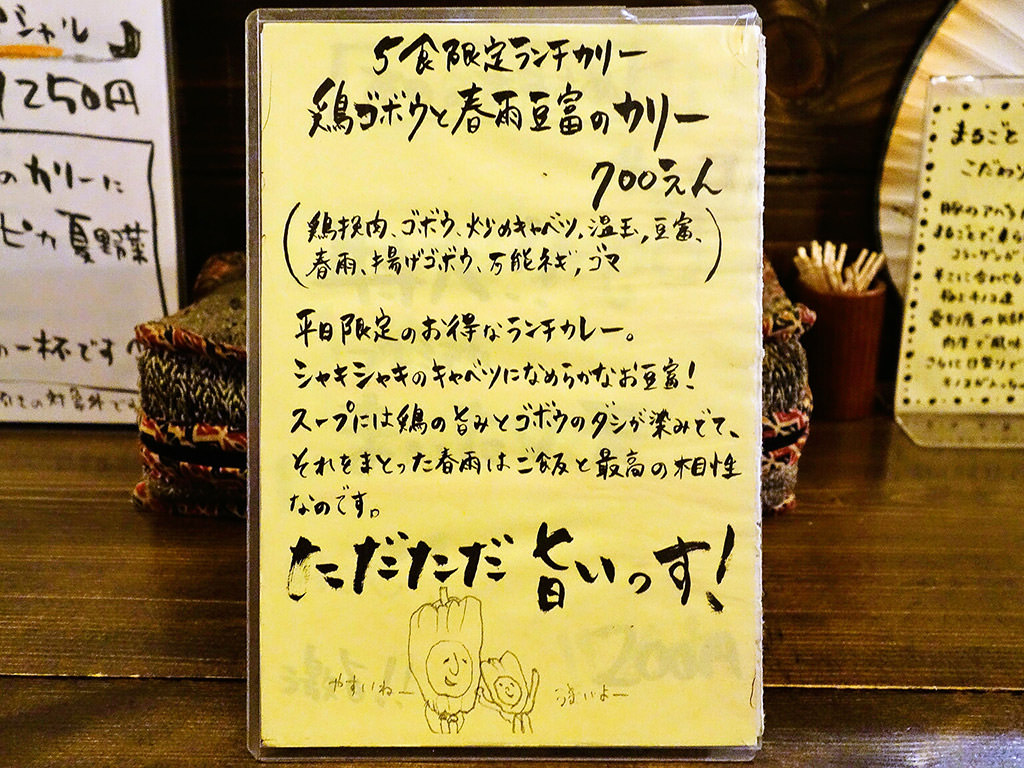 5食限定ランチカリー
鶏ゴボウと春雨豆富のカリー
700えん
(鶏挽肉、ゴボウ、炒めキャベツ、温玉、豆富、
春雨、揚げゴボウ、万能ネギ、ゴマ)
平日限定のお得なランチカレー。
シャキシャキのキャベツになめらかなお豆富!
スープには鶏の旨みとゴボウのダシが染みでて、
それをまとった春雨はご飯と最高の相性
なのです。
ただただ旨いっす!
やすいねー
うまいよー
シャル
1250円
のカリーに
ピカ夏野菜
の一杯です
まるごと
こだわり